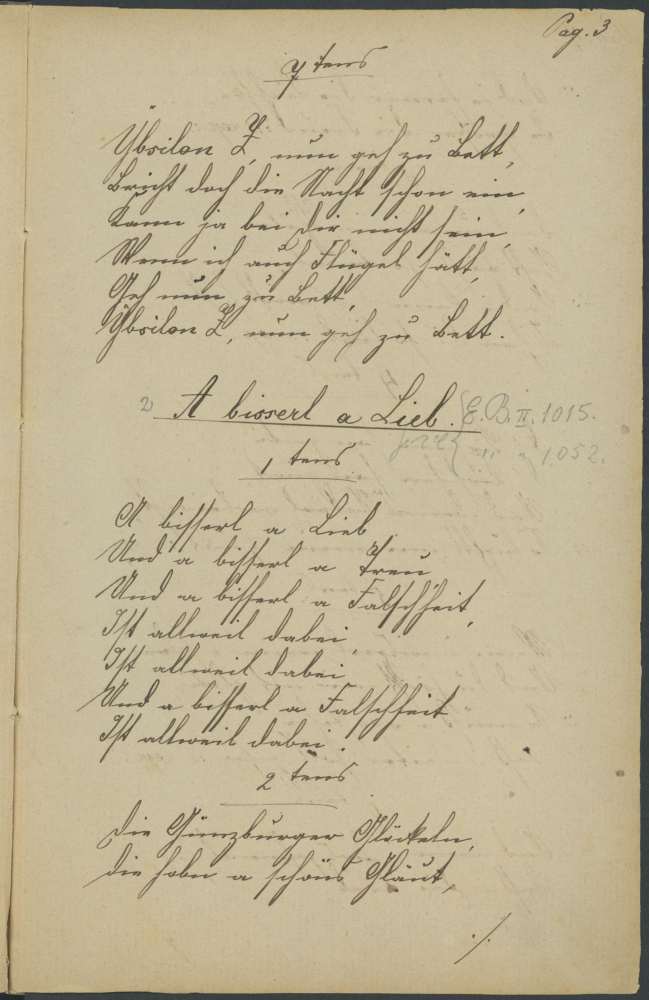 Pag. 3
7 tens
Ÿbsilon Z, nun geh zu Bett,
Bricht doch die Nacht schon ein,
Kann ja bei dir nicht sein,
Wenn ich auch Flügel hätt,
Geh nun zu Bett,
Ÿbsilon Z, nun geh zu Bett.
2) A bisserl a Lieb. E. B. II. 1015.
" " 1052.
1 tens
A bisserl a Lieb
Und a bisserl a Treu
Und a bisserl a Falschheit,
Ist allweil dabei,
Ist allweil dabei
Und a bisserl a Falschheit
Ist allweil dabei.
2 tens
Die Günzburger Glöckeln,
die habn a schöns Gläut,
./.